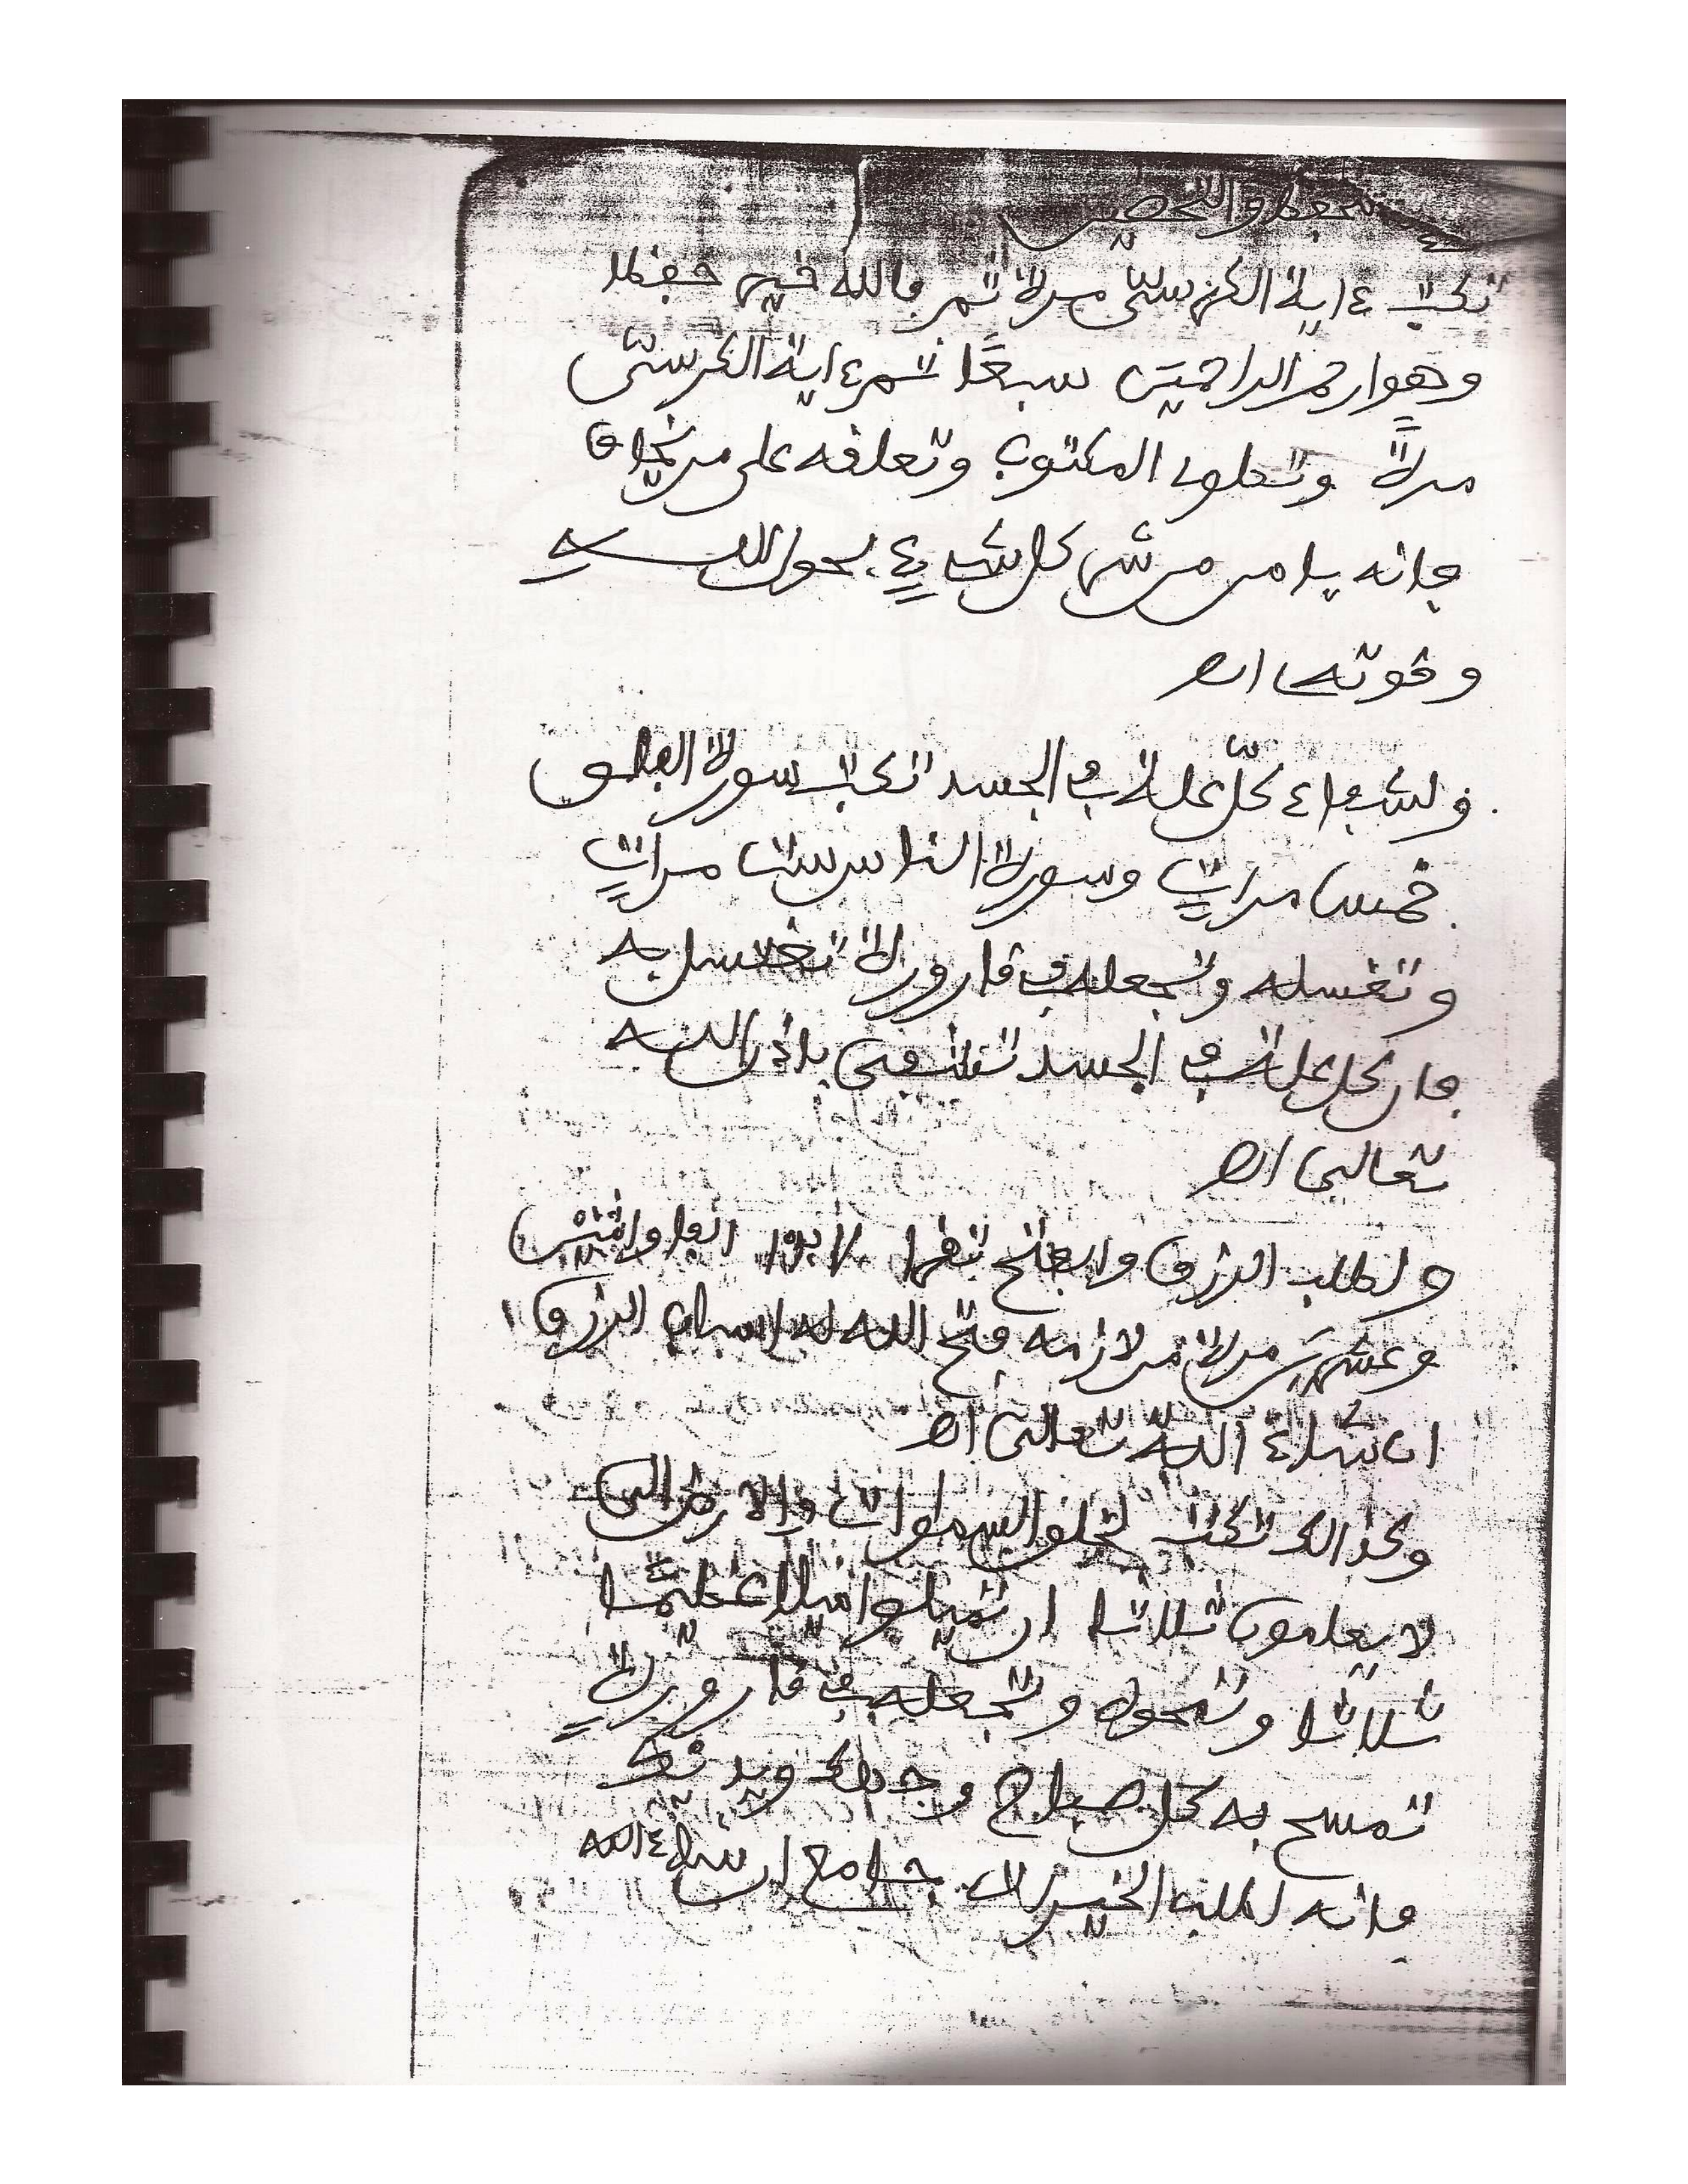 للحفظ والتحصين
تكتب ءاية الكرسي مرة ثم فالله خير حفظا
وهو ارحم الراحمين سبعا ثم ءاية الكرسي
مرة وتعلو المكتوب وتعلقه على من يخاف
فانه يامن من شر كل شيء بحول الله
وقوته اه
ولشفاء كل علة في الجسد تكتب سورة الفلق
خمس مرات وسورة الناس ست مرات
وتغسله وتجعله في قارورة تغتسل به
فان كل علة في الجسد تشفى باذن الله
تعالى اه
ولطلب الرزق والفتح تقرا الفا واثنين
وعشرين مرة من لازمه فتح الله له اسباب الرزق
ان شاء الله تعالى اه
وكذالك تكتب لخلق السماوات والارض الى
لا يعلمون ثلاثا ان تميلوا ميلا عظيما
ثلاثا وتمحوه وتجعله في قارورة
تمسح به كل صباح وجهك ويديك
فانه لطلب الخيرات جامع ان شاء الله